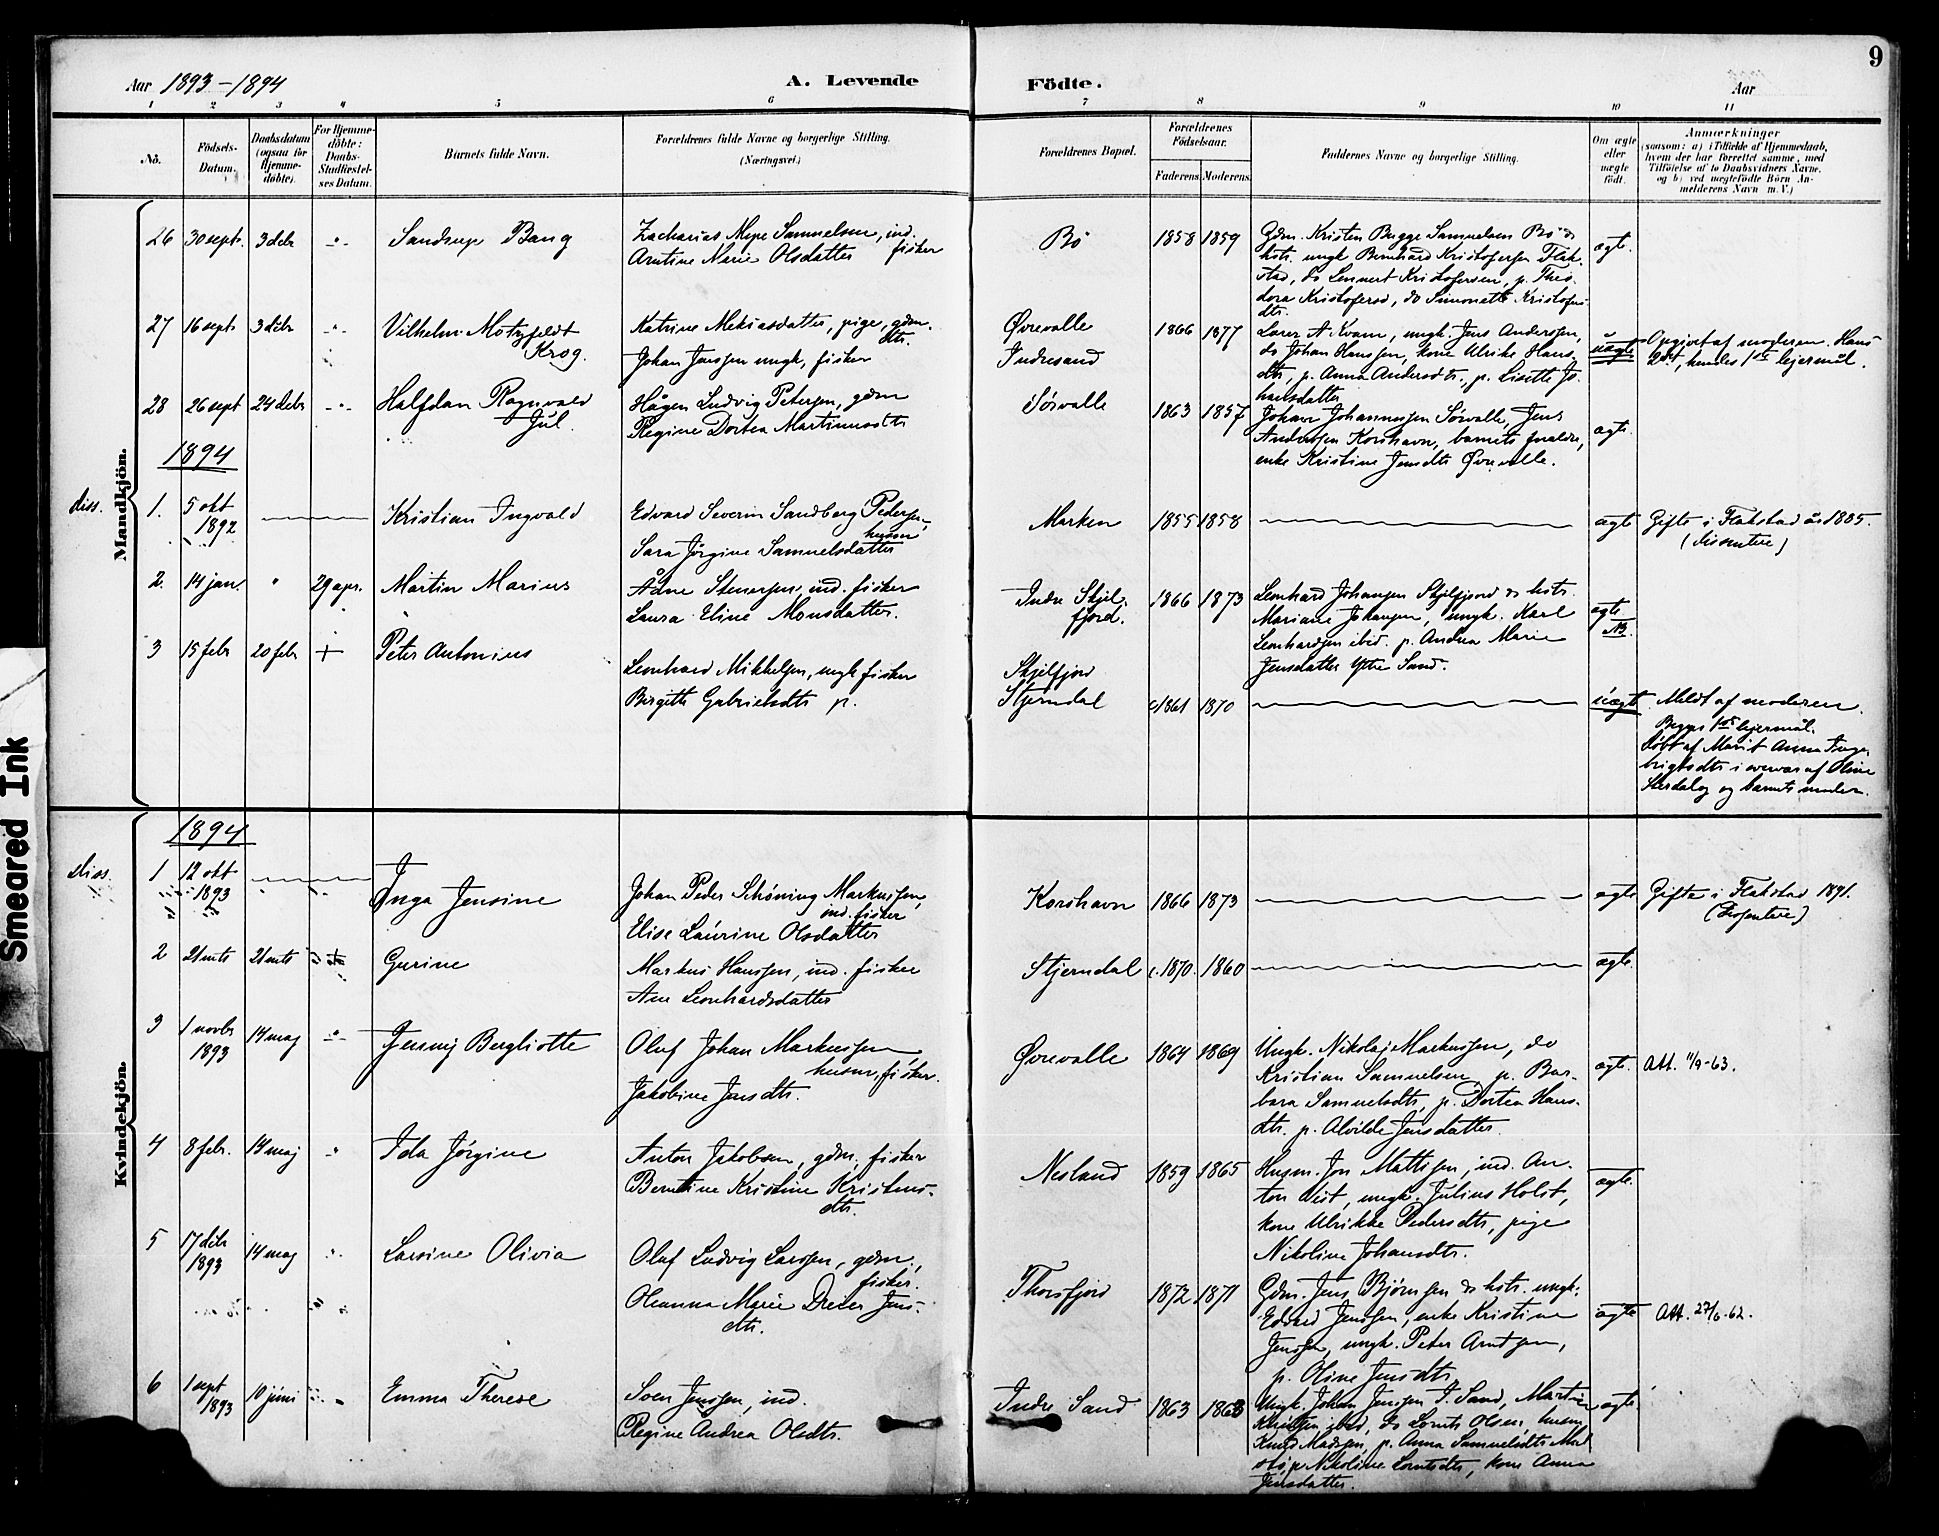 9
Aar 1893-1894
A. Levende
Födte.
Aar
1 2 3 4 5 6 7 8 9 10 11
No.
Födsels-
Datum.
Daabsdatum
(ogsaa for
Hjemme-
döbte).
For Hjemme-
döbte:
Daabs-
Stadfæstel-
ses Datum.
Barnets fulde Navn.
Forældrenes fulde Navne og borgerlige Stilling.
(Næringsvei.)
Forældrenes Bopæl.
Forældrenes
Födselsaar.
Faderens Moderens
Faddernes Navne og borgerlige Stilling.
Om ægte
eller
uægte
født.
Anmærkninger
(saasom: a) i Tilfælde af Hjemmedaab,
hvem der har forrettet samme, med
Tilföielse af to Daabsvidners Navne.
og b) ved uægtefödte Börn An-
melderens Navn m. V.)
Mandkjön.
26 30 sept. 3 debr Bang
Zacharias Samuelsen, ind.
fisker
Arntine Marie Olsdatter
Bø 1858 1859
Gdm. Kristen Bugge Samuelsen Bø &
hstr. ungk Bernhard Kristofersen Flak-
stad, do Lennert Kristofersen, p. Theo-
dora Kristofersd, do Simonette Kristofers-
dtr.
ægte.
27 16 sept. 3 debr Vilhelm Motzfeldt
Krog.
Katrine Mekiasdatter, pige, gdm.
dtr.
Johan Jenssen ungk, fisker
Øvrevalle
Indresand
1866 1877
Lars A Kvam, ungk. Jens Anderssen,
do Johan Hanssen, kone Ulrike Hans-
dtr, p. Anna Andersdtr., p. Lisette Jo-
hansdatter
uægte
Opgivet af moderen. Hans
2det, hendes 1ste lejermål.
28 26 sept 24 debr Halfdan Ragnvald
Jul.
Hågen Ludvig Petersen, gdm
Regine Dortea Martinusdtr
Sørvalle 1863 1857
Johan Johannessen Sørvalle, Jens
Anderssen Korshavn, barnets forældre,
enke Kristine Jensdtr Øvrevalle.
ægte.
1894
diss. 1. 5 okt
1892
Kristian Ingvald
Edvard Severin Sandberg Pedersen,
husm
Sara Jørgine Samuelsdatter
Marken 1855 1858
ægte
Gifte i Flakstad år 1885.
(dissentere)
2. 14 jan. " 29 apr. Martin Marius
Ådne Stenersen, ind. fisker
Laura Eline Monsdatter.
Indre Skjel-
fjord.
1866 1873
Leonhard Johansen Skjelfjord & hstr.
Mariane Johansen, ungk. Karl
Leonhardsen ibid. p. Andrea Marie
Jensdatter Ytre Sand.
ægte
NB.
3 15 febr 20 febr + Peter Antonius
Leonhard Mikkelsen, ungk fisker
Birgitte Gabrielsdtr p.
Skjelfjord
Stjerndal
c1861 1870
uægte
Meldt af moderen.
Begges 1ste lejermål.
Døbt af Marit Anna Inge-
brigtsdtr i overvær af Oline
Sterdal og barnets moder.
Kvindekjön.
1894
diss. 1 12 okt
1893
Inga Jensine
Johan Peder Schöning Markussen,
ind. fisker
Elise Laurine Olsdatter
Korshavn 1866 1873
ægte
Gifte i Flakstad 1891.
(Dissentere)
2 21 mts 21 mts + Gurine
Markus Hanssen, ind. fisker
Ane Leonhardsdatter
Stjerndal c.1870. 1860
ægte.
3 1 novbr
1893
14 maj Jenny Bergliotte
Oluf Johan Markussen,
husm, fisker.
Jakobine Jensdtr.
Øvrevalle 1864 1869
Ungk. Nikolaj Markussen, do
Kristian Samuelsen, p. Bar-
bara Samuelsdtr, p. Dortea Hans-
dtr. p. Alvilde Jensdatter.
ægte. Att. 11/9-63.
4 8 febr. 14 maj Ida Jørgine
Anton Jakobsen, gdm. fisker
Berntine Kristine Kristens-
dtr.
Nesland 1859 1865
Husm. Jon Mattisen, ind. An-
ton Vest, ungk. Julius Holst,
kone Ulrikke Pedersdtr, pige
Nikoline Johansdtr.
ægte.
5 17 debr
1893
14 maj Larsine Olivia
Oluf Ludvig Larssen, gdm.,
fisker.
Oleanna Marie Dreier Jens-
dtr.
Thorsfjord 1872 1871
Gdm. Jens Bjørnsen & hstr. ungk.
Edvard Jenssen, enke Kristine
Jenssen, ungk. Peter Arntsen,
p. Oline Jensdtr.
ægte Att. 27/6-62.
6 1 sept
1893
10 juni Emma Therese
Soen Jenssen, ind.
Regine Andrea Olsdtr.
Indre Sand 1863 1863
Ungk. Johan Jenssen I. Sand, Martin
ibid, do Lornts Olsen, husm
Knud Madsen, p. Anna Samuelsdtr
p Nikoline Lorntsdtr, kone Anna
Jensdatter.
ægte.
Smeared Ink